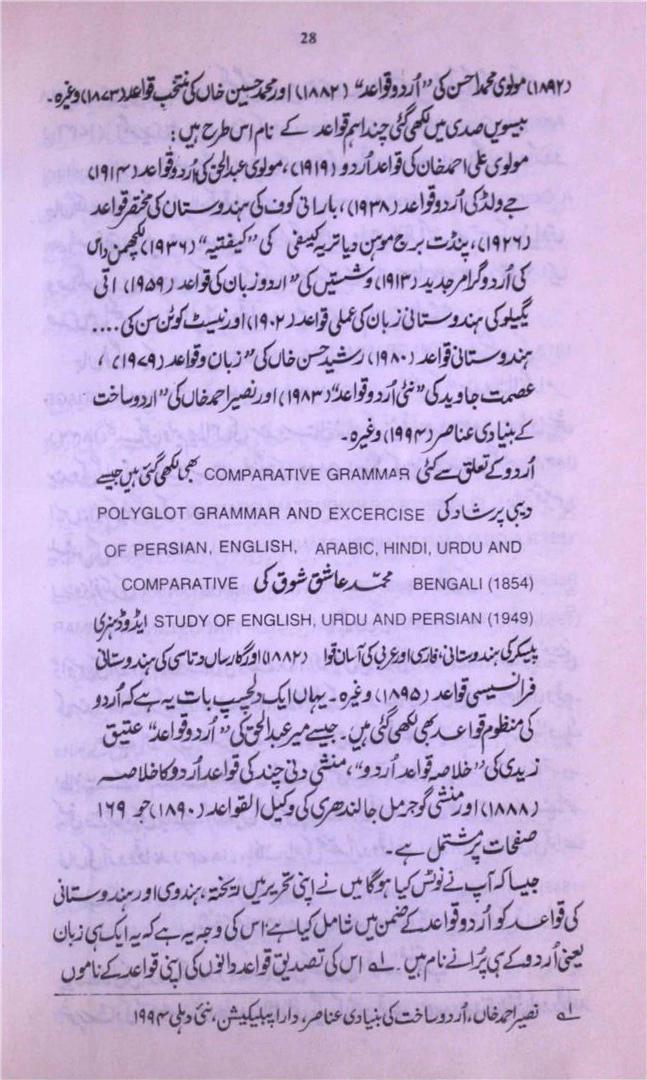 28
(۱۸۹۲) مولوی محمد احسن کی ”اُردو قواعد“ (۱۸۸۲) اور محمد حسین خاں کی منتخب قواعد (۱۸۷۳) وغیرہ۔
بیسویں صدی میں لکھی گئی چند اہم قواعد کے نام اس طرح ہیں:
مولوی علی احمد خان کی قواعد اُردو (۱۹۱۹)، مولوی عبدالحق کی اُردو قواعد (۱۹۱۴)
جے ولڈ کی اُردو قواعد (۱۹۳۸)، بارانی کوف کی ہندوستان کی مختصر قواعد
(۱۹۲۶)، پنڈت برج موہن دیاتریہ کیفی کی ”کیفتیہ“ (۱۹۳۶) لچھمن داس
کی اُردو گرامر جدید (۱۹۱۳) وششیں کی ”اردو زبان کی قواعد (۱۹۵۹) اتی
یگیلو کی ہندوستانی زبان کی عملی قواعد (۱۹۰۲) اور نسیٹ کوٹن سن کی ....
ہندوستانی قواعد (۱۹۸۰) رشید حسن خاں کی ”زبان و قواعد (۱۹۷۹)،
عصمت جاوید کی ”نئی اُردو قواعد“ (۱۹۸۳) اور نصیر احمد خاں کی ”اردو ساخت
کے بنیادی عناصر (۱۹۹۴) وغیرہ۔
اُردو کے تعلق سے کئی COMPARATIVE GRAMMAR بھی لکھی گئی ہیں جیسے
دیبی پرشاد کی POLYGLOT GRAMMAR AND EXCERCISE
OF PERSIAN, ENGLISH, ARABIC, HINDI, URDU AND
BENGALI (1854) محمّد عاشق شوق کی COMPARATIVE
STUDY OF ENGLISH, URDU AND PERSIAN (1949) ایڈوڈ ہنری
پلیمر کی ہندوستانی، فارسی اور عربی کی آسان قوا (۱۸۸۲) اور گارساں دتاسی کی ہندوستانی
فرانسیسی قواعد (۱۸۹۵) وغیرہ۔ یہاں ایک دلچسپ بات یہ ہے کہ اُردو
کی منظوم قواعد بھی لکھی گئی ہیں۔ جیسے میر عبدالحق کی ”اُردو قواعد“ عتیق
زیدی کی ”خلاصہ قواعد اردو“، منشی دنی چند کی قواعد اُردو کا خلاصہ
(۱۸۸۸) اور منشی گوجر مل جالندھری کی وکیل القواعد (۱۸۹۰) جو ۱۶۹
صفحات پر مشتمل ہے۔
جیسا کہ آپ نے نوٹس کیا ہوگا میں نے اپنی تحریر میں ریختہ، ہندوی اور ہندوستانی
کی قواعد کو اُردو قواعد کے ضمن میں شامل کیا ہے اس کی وجہ یہ ہے کہ یہ ایک ہی زبان
یعنی اُردو کے ہی پُرانے نام ہیں۔ ۱ے اس کی تصدیق قواعد دانوں کی اپنی قواعد کے ناموں
۱ے نصیر احمد خاں، اُردو ساخت کی بنیادی عناصر، دارا پبلیکیشن، نئی دہلی ۱۹۹۴